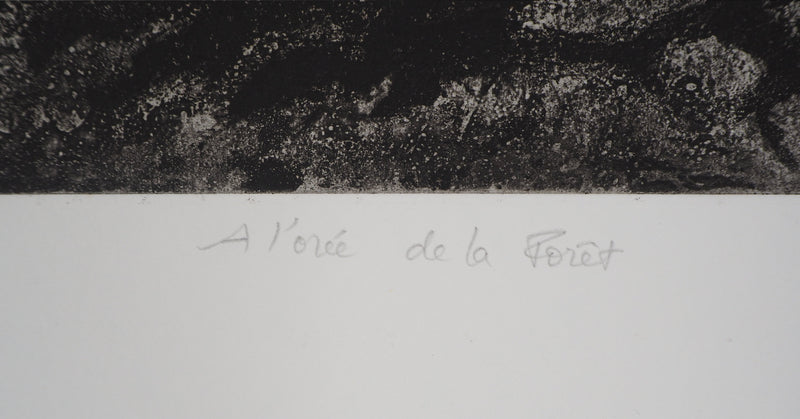 A l'orée de la Forêt